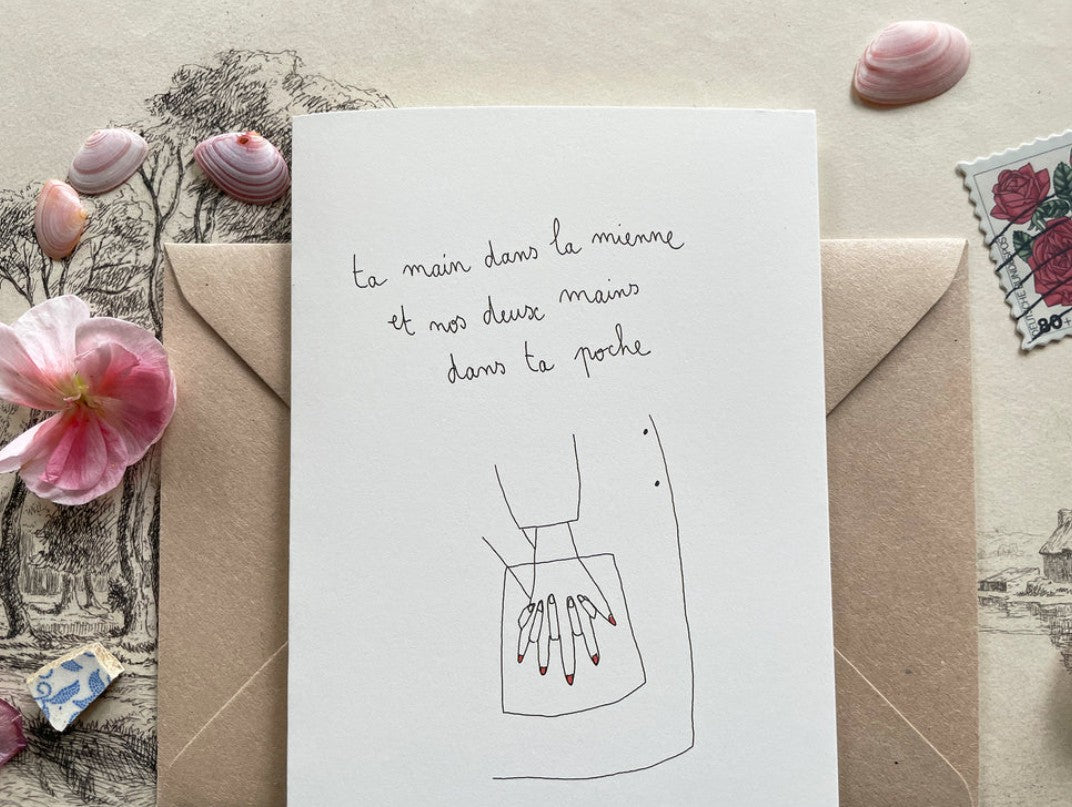 ta main dans la mienne
et nos deux mains
dans ta poche
80